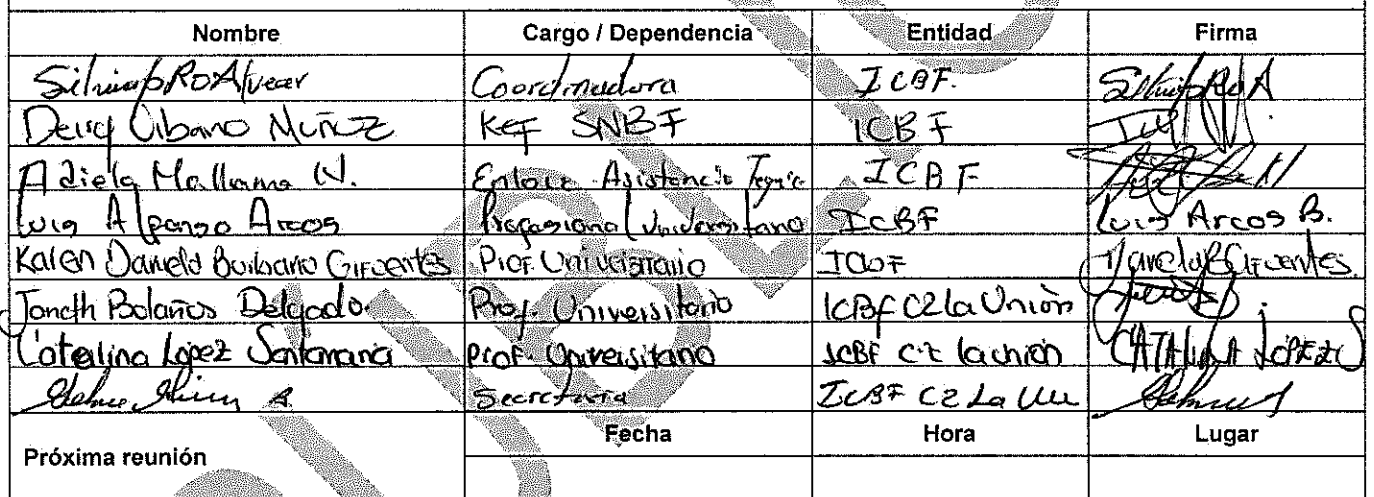 Nombre Cargo / Dependencia Entidad Firma
Coordinadora ICBF.
Deicy Urbano Muñoz Ref SNBF ICBF
Adiela Mallama N. Enlace Asistencia ICBF
Luis Alfonso Arcos Profesional Universitario ICBF Luis Arcos B.
Karen Daniela Burbano Cifuentes Prof. Universitario ICBF
Janeth Bolaños Delgado. Prof. Universitario ICBF CZ La Unión
Catalina López Santamaria Prof. Universitario ICBF CZ la unión CATALINA LOPEZ S
Secretaria ICBF CZ La
Próxima reunión Fecha Hora Lugar